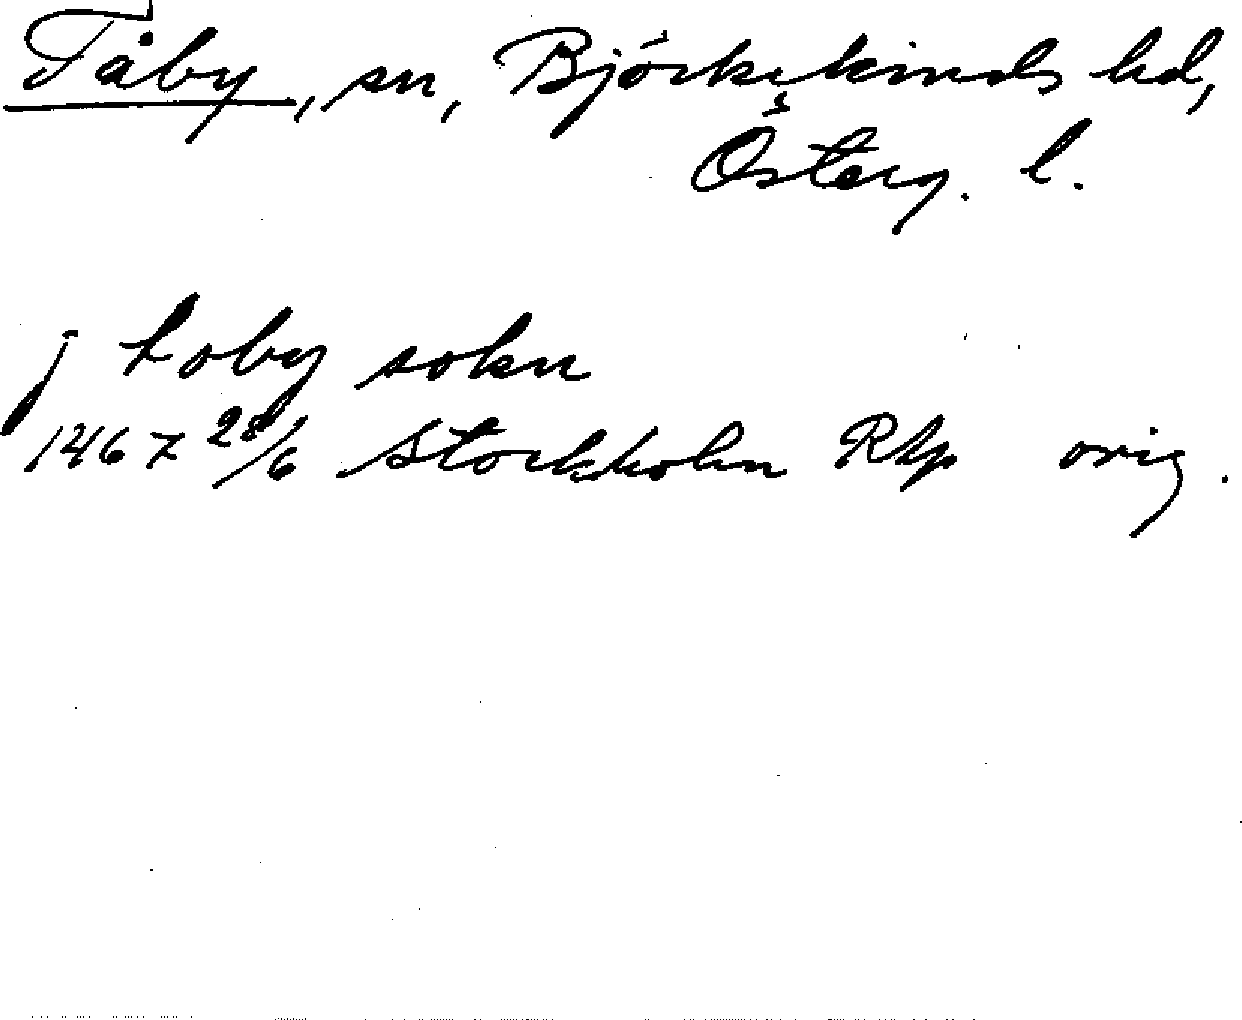 Tåby, sn, Björkekinds hd,
Österg. l.
j toby sokn
1467 28/6 Stockholm RAp orig.